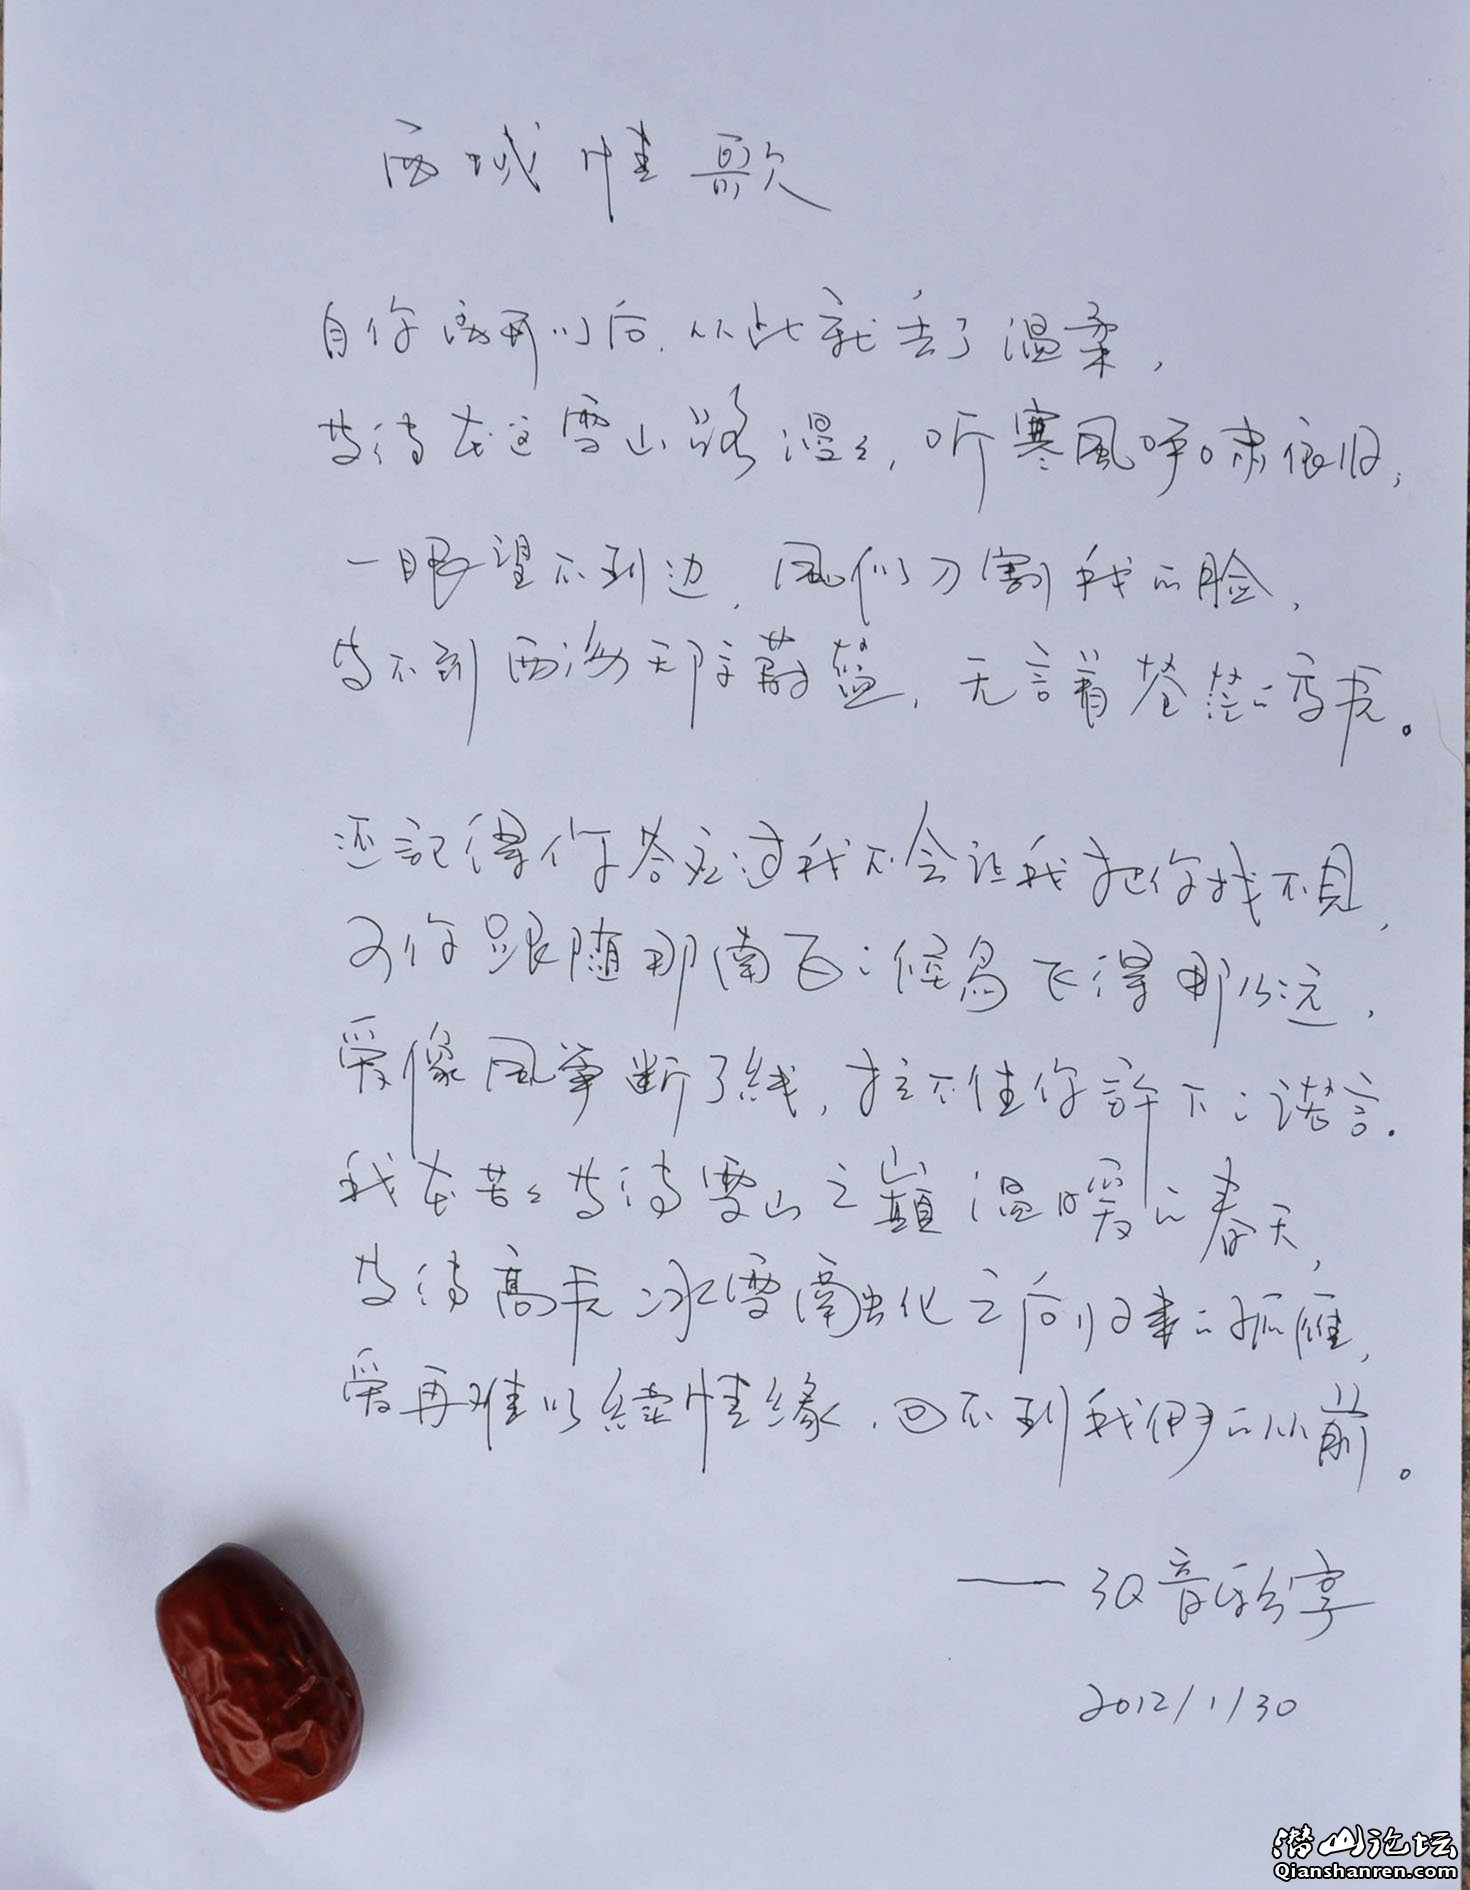 西域情歌
自你离开以后,从此就丢了温柔,
等待在这雪山路漫々,听寒風呼啸依旧,
一眼望不到边,风似刀割我的脸,
等不到西海天际蔚蓝,无言着苍茫的高原。
还記得你答应过我不会让我把你找不見,
可你跟随那南飞的候鸟飞得那么远,
爱像风筝断了綫,拉不住你許下的諾言.
我在苦々等待雪山之巅温暖的春天,
等待高原冰雪融化之后归来的孤雁,
爱再难以續情缘,回不到我们的从前。
——3Q音乐分享
2012/1/30
潜山论坛
Qianshanren.com